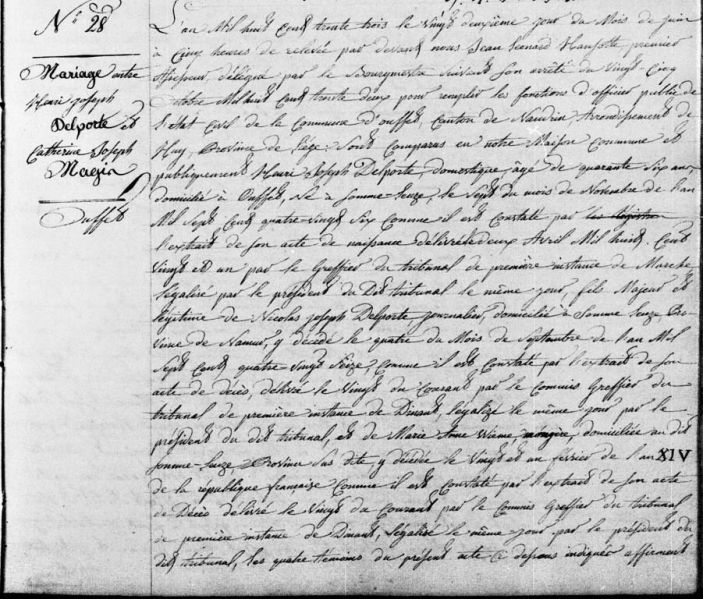 N.° 28
Mariage entre
Henri Joseph
Delporte et
Catherine Joseph
Magis
Ouffet
L'an Mil huit Cent trente trois le Vingt deuxième jour du Mois de juin
à Cinq heures de relevée par devant nous Jean Leonard Hansotte, premier
Assesseur délégué par le Bourgmestre Suivant son arrêté du Vingt-Cinq
Octobre Mil huit Cent trente deux pour remplir les fonctions d'officier public de
l'état Civil de la Commune d'ouffet, Canton de Nandrin Arrondissement de
Huy, Province de Liége: Sont Comparus en notre Maison Commune et
publiquement Henri Joseph Delporte, domestique, âgé de quarante Six ans,
domicilié à Ouffet, Né à Somme-Leuze, le Sept du mois de Novembre de l'an
Mil Sept Cent quatre-vingt Six Comme il est Constaté par les registres
l'extrait de son acte de naissance délivré le deux Avril Mil huit Cent
Vingt et un par le Greffier du tribunal de première instance de Marche
légalisé par le président du Dit tribunal le même jour, fils Majeur et
légitime de Nicolas Joseph Delporte journalier, domicilié à Somme Leuze Pro-
vince de Namur, y décédé le quatre du Mois de Septembre de l'an Mil
Sept Cent quatre-vingt Seize, Comme il est Constaté par l'extrait de son
acte de décès, délivré le Vingt du Courant par le Commis Greffier du
tribunal de première instance de Dinant, légalisé le même jour par le
président du dit tribunal, et de Marie Anne ménagère, domiciliée au dit
Somme-Leuze, Province Sus dite, y décédée le Vingt et un février de l'an XIV
de la république française Comme il est Constaté par l'extrait de son acte
de Décès délivré le Vingt du Courant par le Commis Greffier du tribunal
de première instance de Dinant, légalisé le même jour par le président du
dit tribunal, les quatre témoins du présent acte Ci dessous indiqués affirment